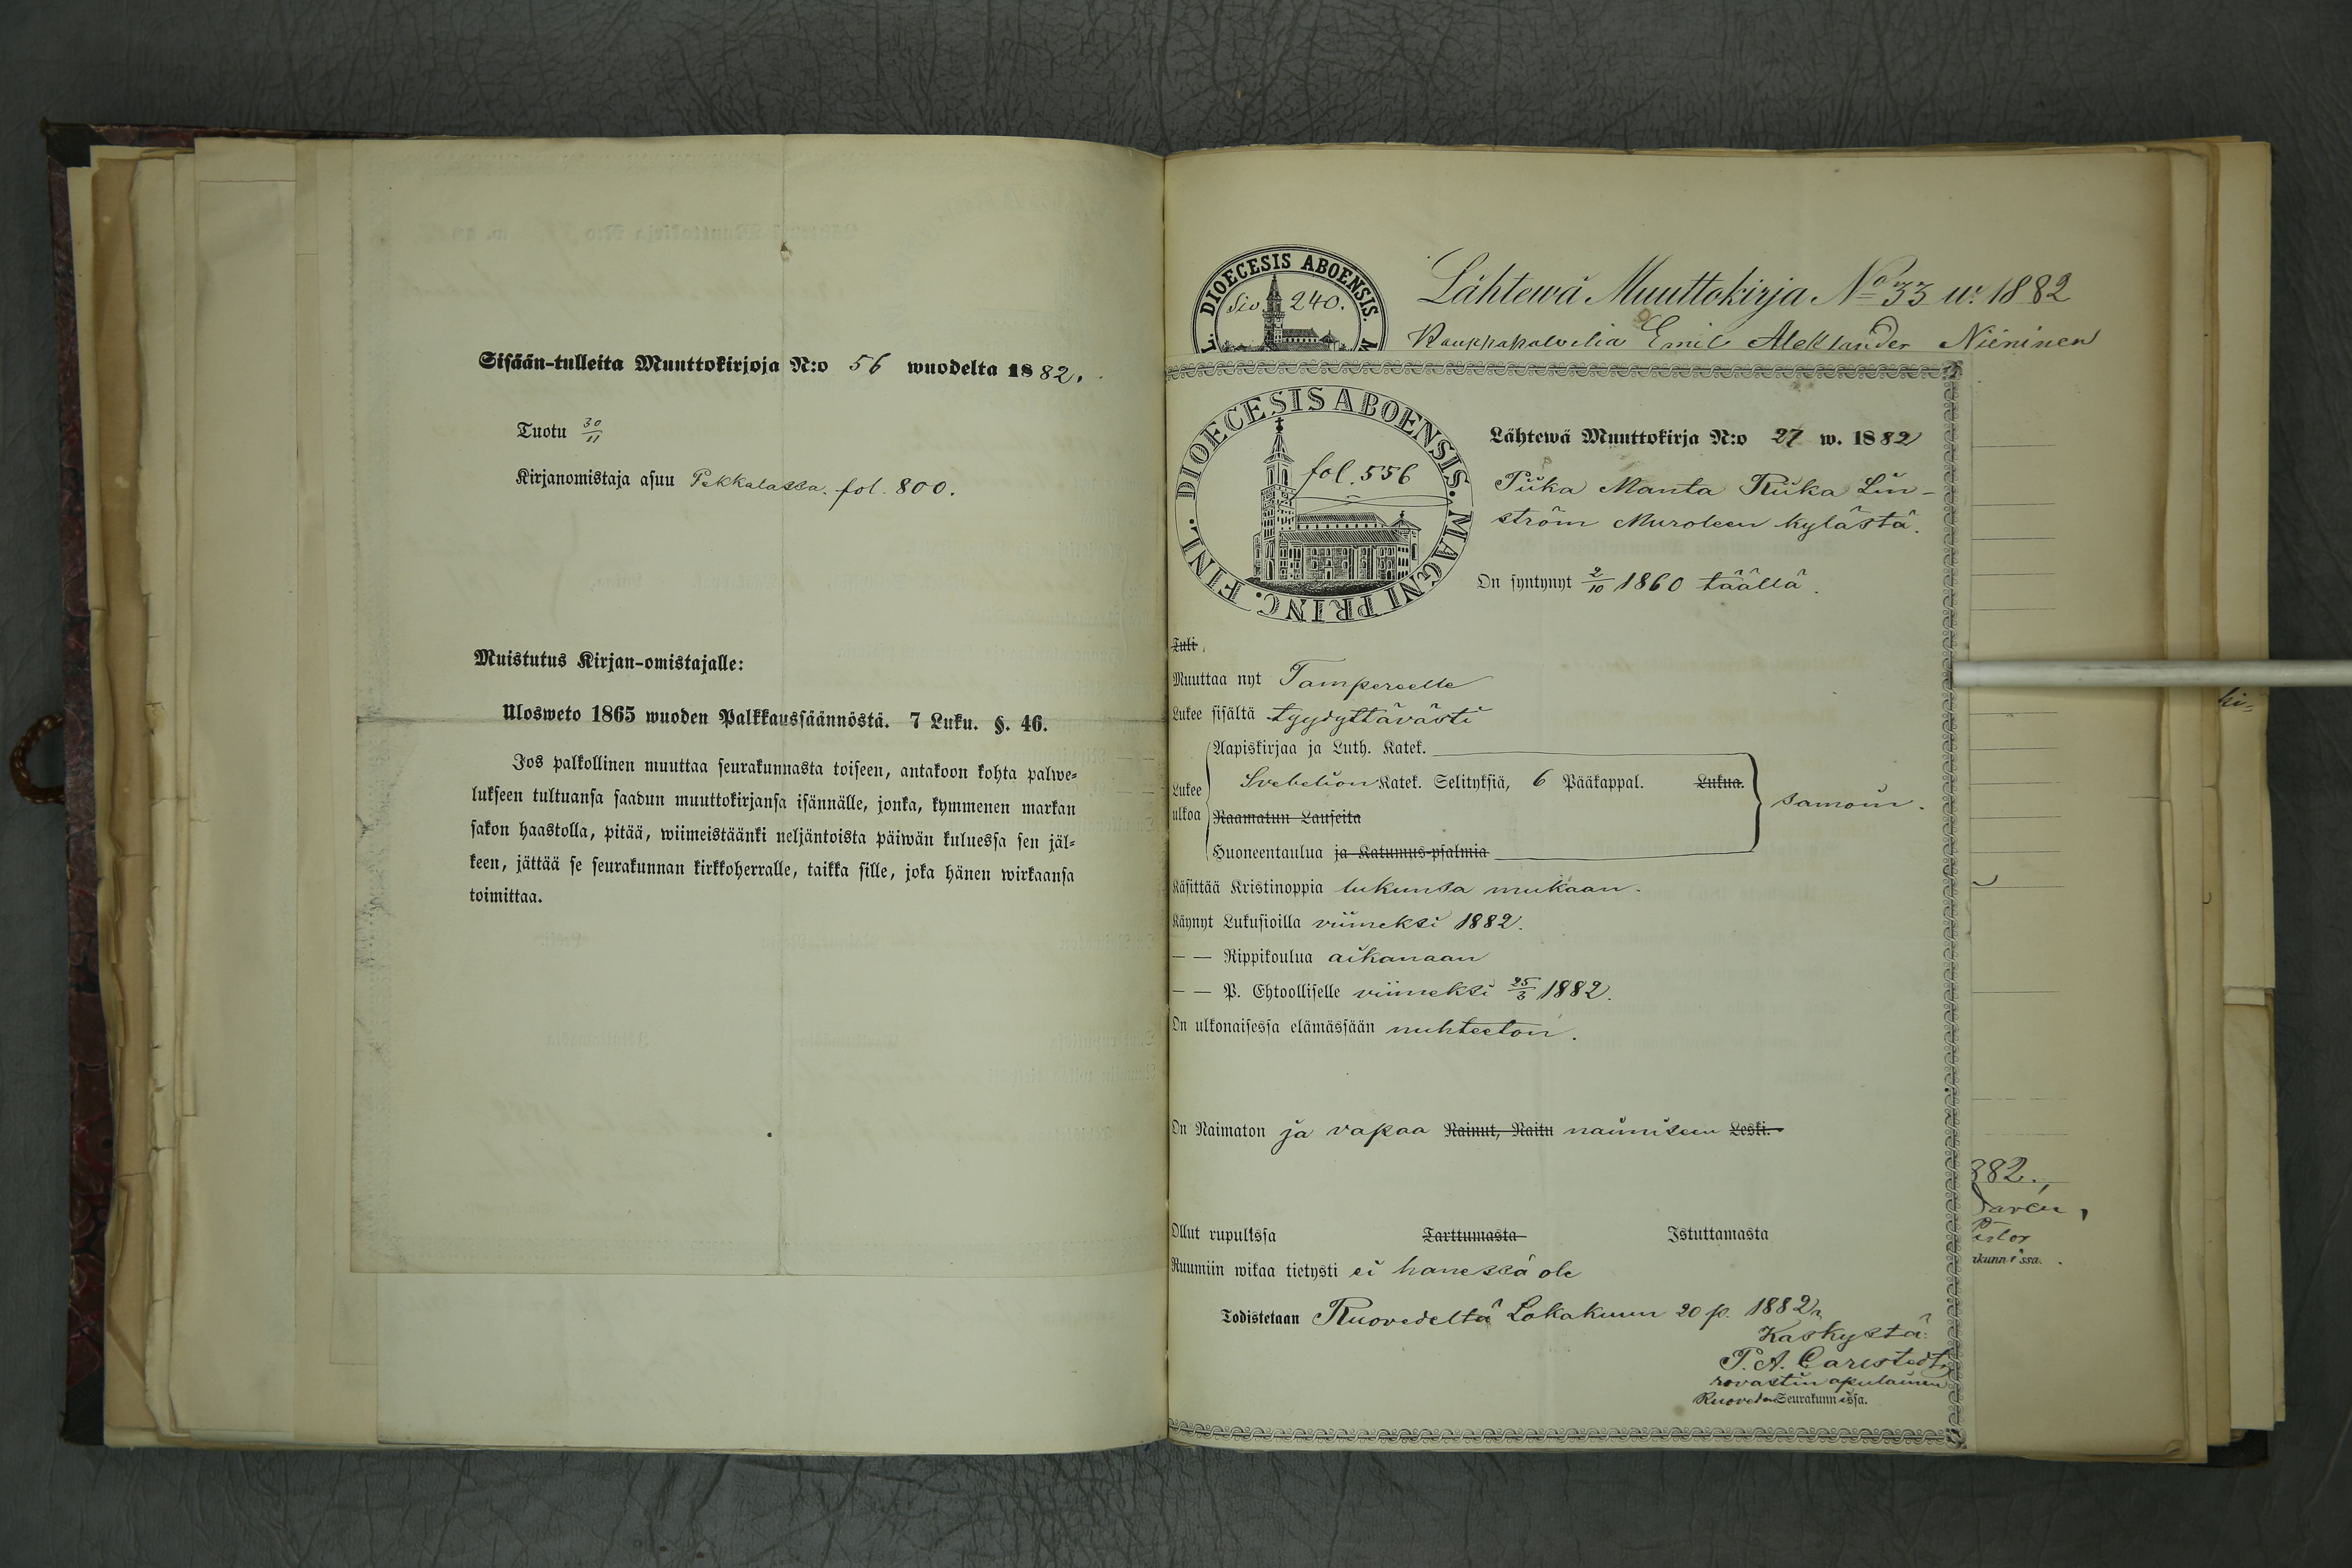 Sisään-tulleita Muuttokirjoja N:o 56 wuodelta 1882.
Tuotu 30/11
Kirjanomistaja asuu Pekkalassa. fol. 800.
Muistutus Kirjan-omistajalle:
Ulosweto 1865 wuoden Palkkaussäännöstä. 7 Luku. §. 46.
Jos palkollinen muuttaa seurakunnasta toiseen, antakoon kohta palwe-
lukseen tultuansa saadun muuttokirjansa isännälle, jonka, kymmenen markan
sakon haastolla, pitää, wiimeistäänki neljäntoista päiwän kuluessa sen jäl-
keen, jättää se seurakunnan kirkkoherralle, taikka sille, joka hänen wirkaansa
toimittaa.
DIOECESIS ABOENSIS. M
Siv. 240.
Lähtewä Muuttokirja No 33 w. 1882
Kauppapalvelia Emil Aleksander Nieninen
FINL. DIOECESIS ABOENSIS. MAGNI PRINC.
fol. 556
Lähtewä Muuttokirja N:o 27 w. 1882
Piika Manta Riika Lin-
ström Muroleen kylästä.
On syntynyt 2/10 1860 täällä.
Tuli
Muuttaa nyt Tampereelle
Lukee sisältä tyydyttävästi
Lukee ulkoa
Aapiskirjaa ja Luth. Katek.
Svebelion Katek. Selityksiä, 6 Pääkappal. Lukua.
Raamatun Lauseita
Huoneentaulua ja Katumus-psalmia
samoin.
Käsittää Kristinoppia lukunsa mukaan.
Käynyt Lukusioilla viimeksi 1882.
— — Rippikoulua aikanaan
— — P. Ehtoolliselle viimeksi 25/3 1882.
On ulkonaisessa elämässään nuhteeton.
On Naimaton ja vapaa Nainut, Naitu naimiseen Leski.
Ollut rupulissa Tarttumasta Istuttamasta
Ruumiin wikaa tietysti ei hanessä ole
Todistetaan Ruovedeltä Lokakuun 20 p. 1882,
Käskystä:
P. A. Carlstedt,
rovastin apulainen
Ruoveden Seurakunnissa.
882.,
akunn ssa.